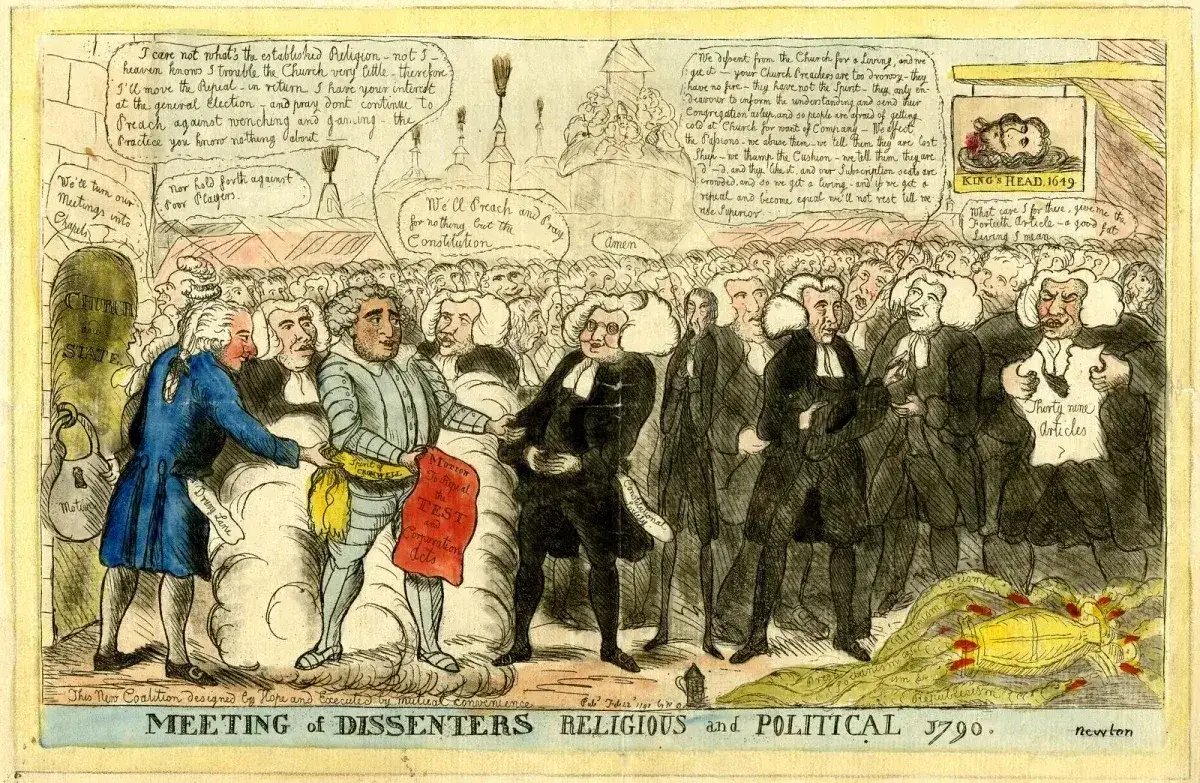 I care not what's the established Religion - not I -
heaven knows I trouble the Church very little - therefore
I'll move the Repeal - in return I have your interest
at the general Election - and pray dont continue to
Preach against wenching and gaming - the
Practice you know nothing about
We'll turn our
Meetings into
Chapels
Nor hold forth against
Poor Players.
We'll Preach and Pray
for nothing but the
Constitution
Amen
We dissent from the Church for a Living, and we
get it - your Church Preachers are too drowsy - they
have no fire - they have not the Spirit - they only en-
deavour to inform the understanding and send their
Congregation asleep, and so people are afraid of getting
cold at Church for want of Company - We affect
the Passions - we abuse them - we tell them they are lost
Sheep - we thump the Cushion - we tell them they are
d--d, and they like it, and our Subscription seats are
crowded, and so we get a living - and if we get a
repeal and become equal we'll not rest till we
rise Superior
KING'S HEAD. 1649
What care I for these, give me the
Fortieth Article - a good fat
Living I mean
CHURCH
and
STATE
Motion
Drury Lane
Spirit of
CROMWELL
Motion
To Repeal
the
TEST
and
Corporation
Acts
Thirty nine
Articles
Deism
Republicism
This New Coalition designed by Hope and Executed by mutual Convenience
MEETING of DISSENTERS RELIGIOUS and POLITICAL 1790.
newton